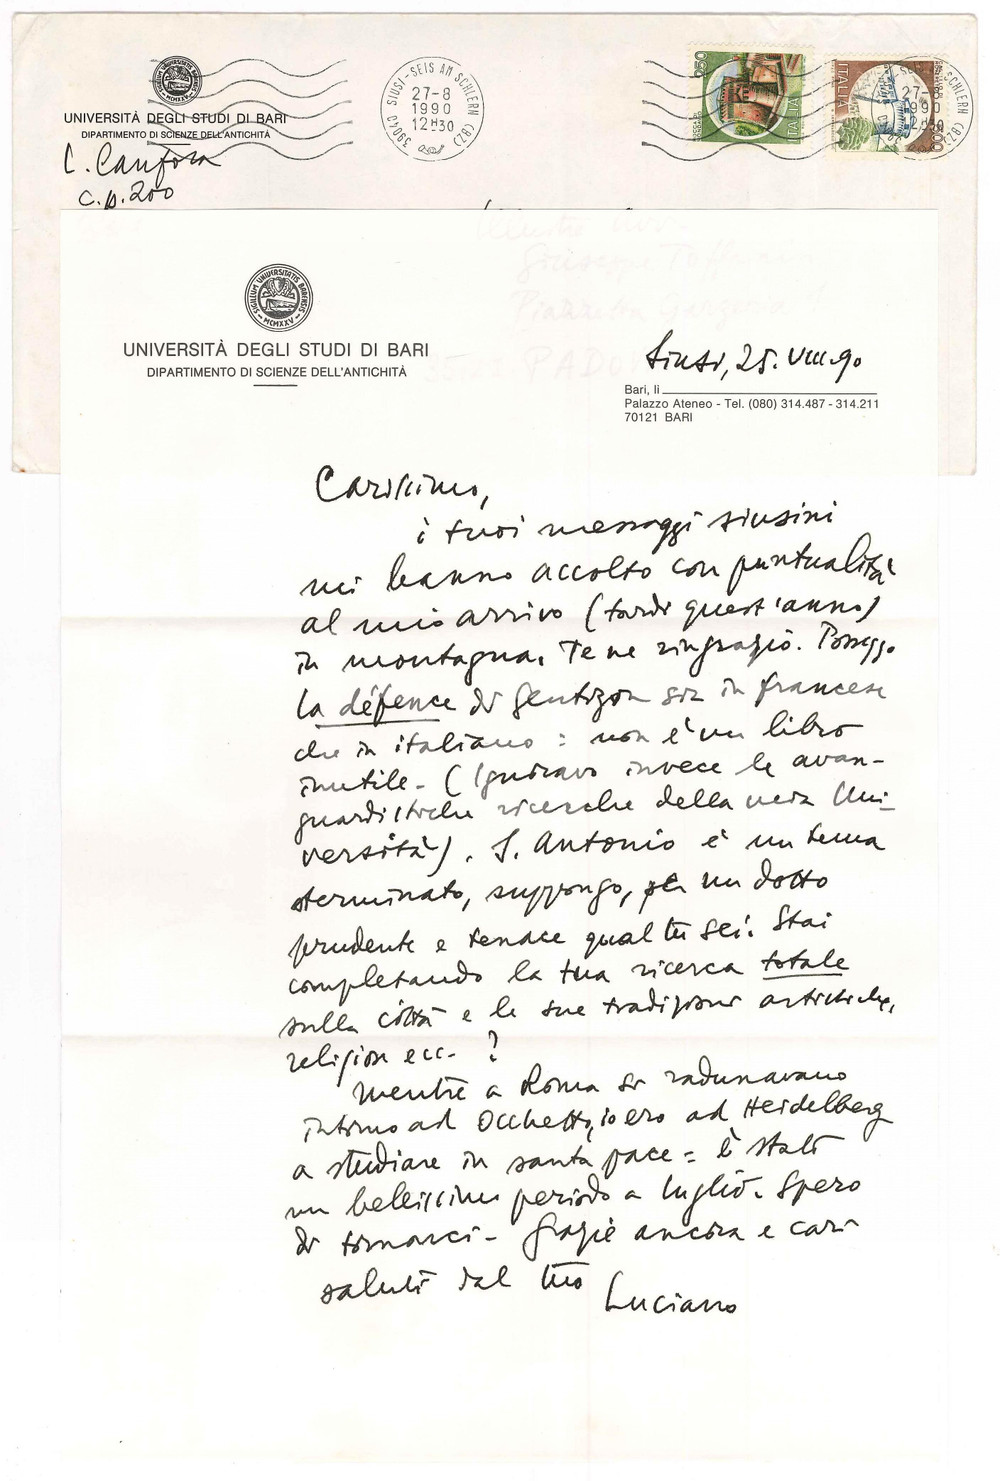 SIGILLUM UNIVERSITATIS BARENSIS
MCMXXV
UNIVERSITÀ DEGLI STUDI DI BARI
DIPARTIMENTO DI SCIENZE DELL'ANTICHITÀ
L. Canfora
C.P. 200
39040 SIUSI-SEIS AM SCHLERN (BZ)
27-8
1990
12H30
650
ITALIA
ITALIA
SCHLERN (BZ)
27-8
1990
12H30
Illustre
Giuseppe Toffanin
Piazzetta
PADO
SIGILLUM UNIVERSITATIS BARENSIS
MCMXXV
UNIVERSITÀ DEGLI STUDI DI BARI
DIPARTIMENTO DI SCIENZE DELL'ANTICHITÀ
Siusi, 25.VIII.90
Bari, li
Palazzo Ateneo - Tel. (080) 314.487 - 314.211
70121 BARI
Carissimo,
i tuoi messaggi siusini
mi hanno accolto con puntualità
al mio arrivo (tardi quest'anno)
in montagna. Te ne ringrazio. Posseggo
la défence di Gentizon sia in francese
che in italiano: non è un libro
inutile - (Ignoravo invece le avan-
guardistiche ricerche della mia Uni-
versità). S. Antonio è un tema
sterminato, suppongo, per un dotto
prudente e tenace qual tu sei. Stai
completando la tua ricerca totale
sulla città e le sue tradizioni artistiche,
religiose ecc. ?
Mentre a Roma si radunavano
intorno ad Occhetto, io ero ad Heidelberg
a studiare in santa pace: è stato
un bellissimo periodo a luglio. Spero
di tornarci - Grazie ancora e cari
saluti dal tuo
Luciano